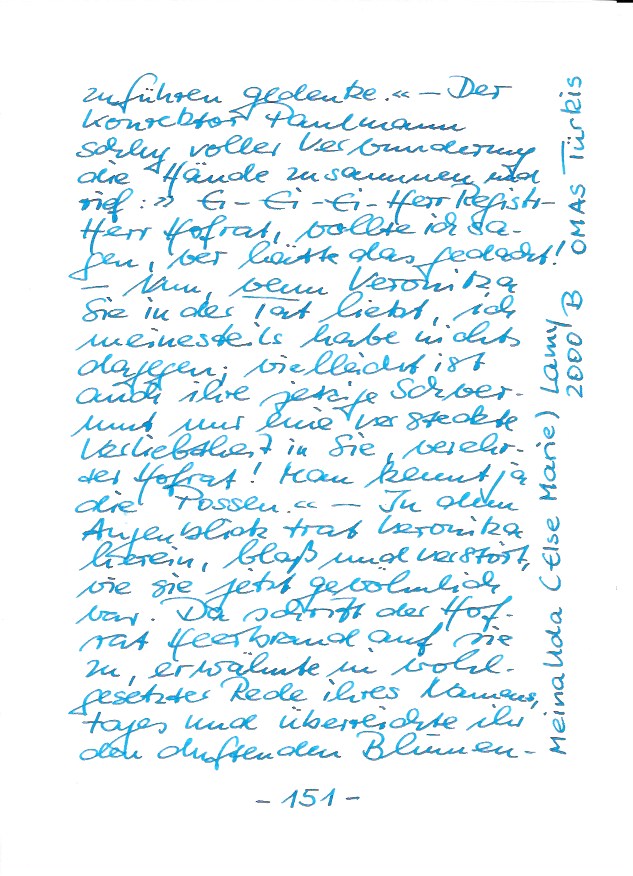 zuführen gedenke.« – Der
Konrektor Paulmann
schlug voller Verwunderung
die Hände zusammen und
rief: » Ei – Ei – Ei – Herr Registr –
Herr Hofrat, wollte ich sa-
gen, wer hätte das gedacht!
– Nun, wenn Veronika
Sie in der Tat liebt, ich
meinesteils habe nichts
dagegen; vielleicht ist
auch ihre jetzige Schwer-
mut nur eine versteckte
Verliebtheit in Sie, verehr-
ter Hofrat! Man kennt ja
die Possen.« – In dem
Augenblick trat Veronika
herein, blaß und verstört,
wie sie jetzt gewöhnlich
war. Da schritt der Hof-
rat Heerbrand auf sie
zu, erwähnte in wohl-
gesetzter Rede ihres Namens-
tages und überreichte ihr
den duftenden Blumen-
- 151 -
Meinahda (Else Marie) Lamy
2000 B OMAs Türkis